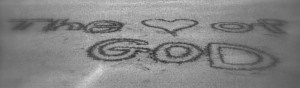 The ♡ of
GOD